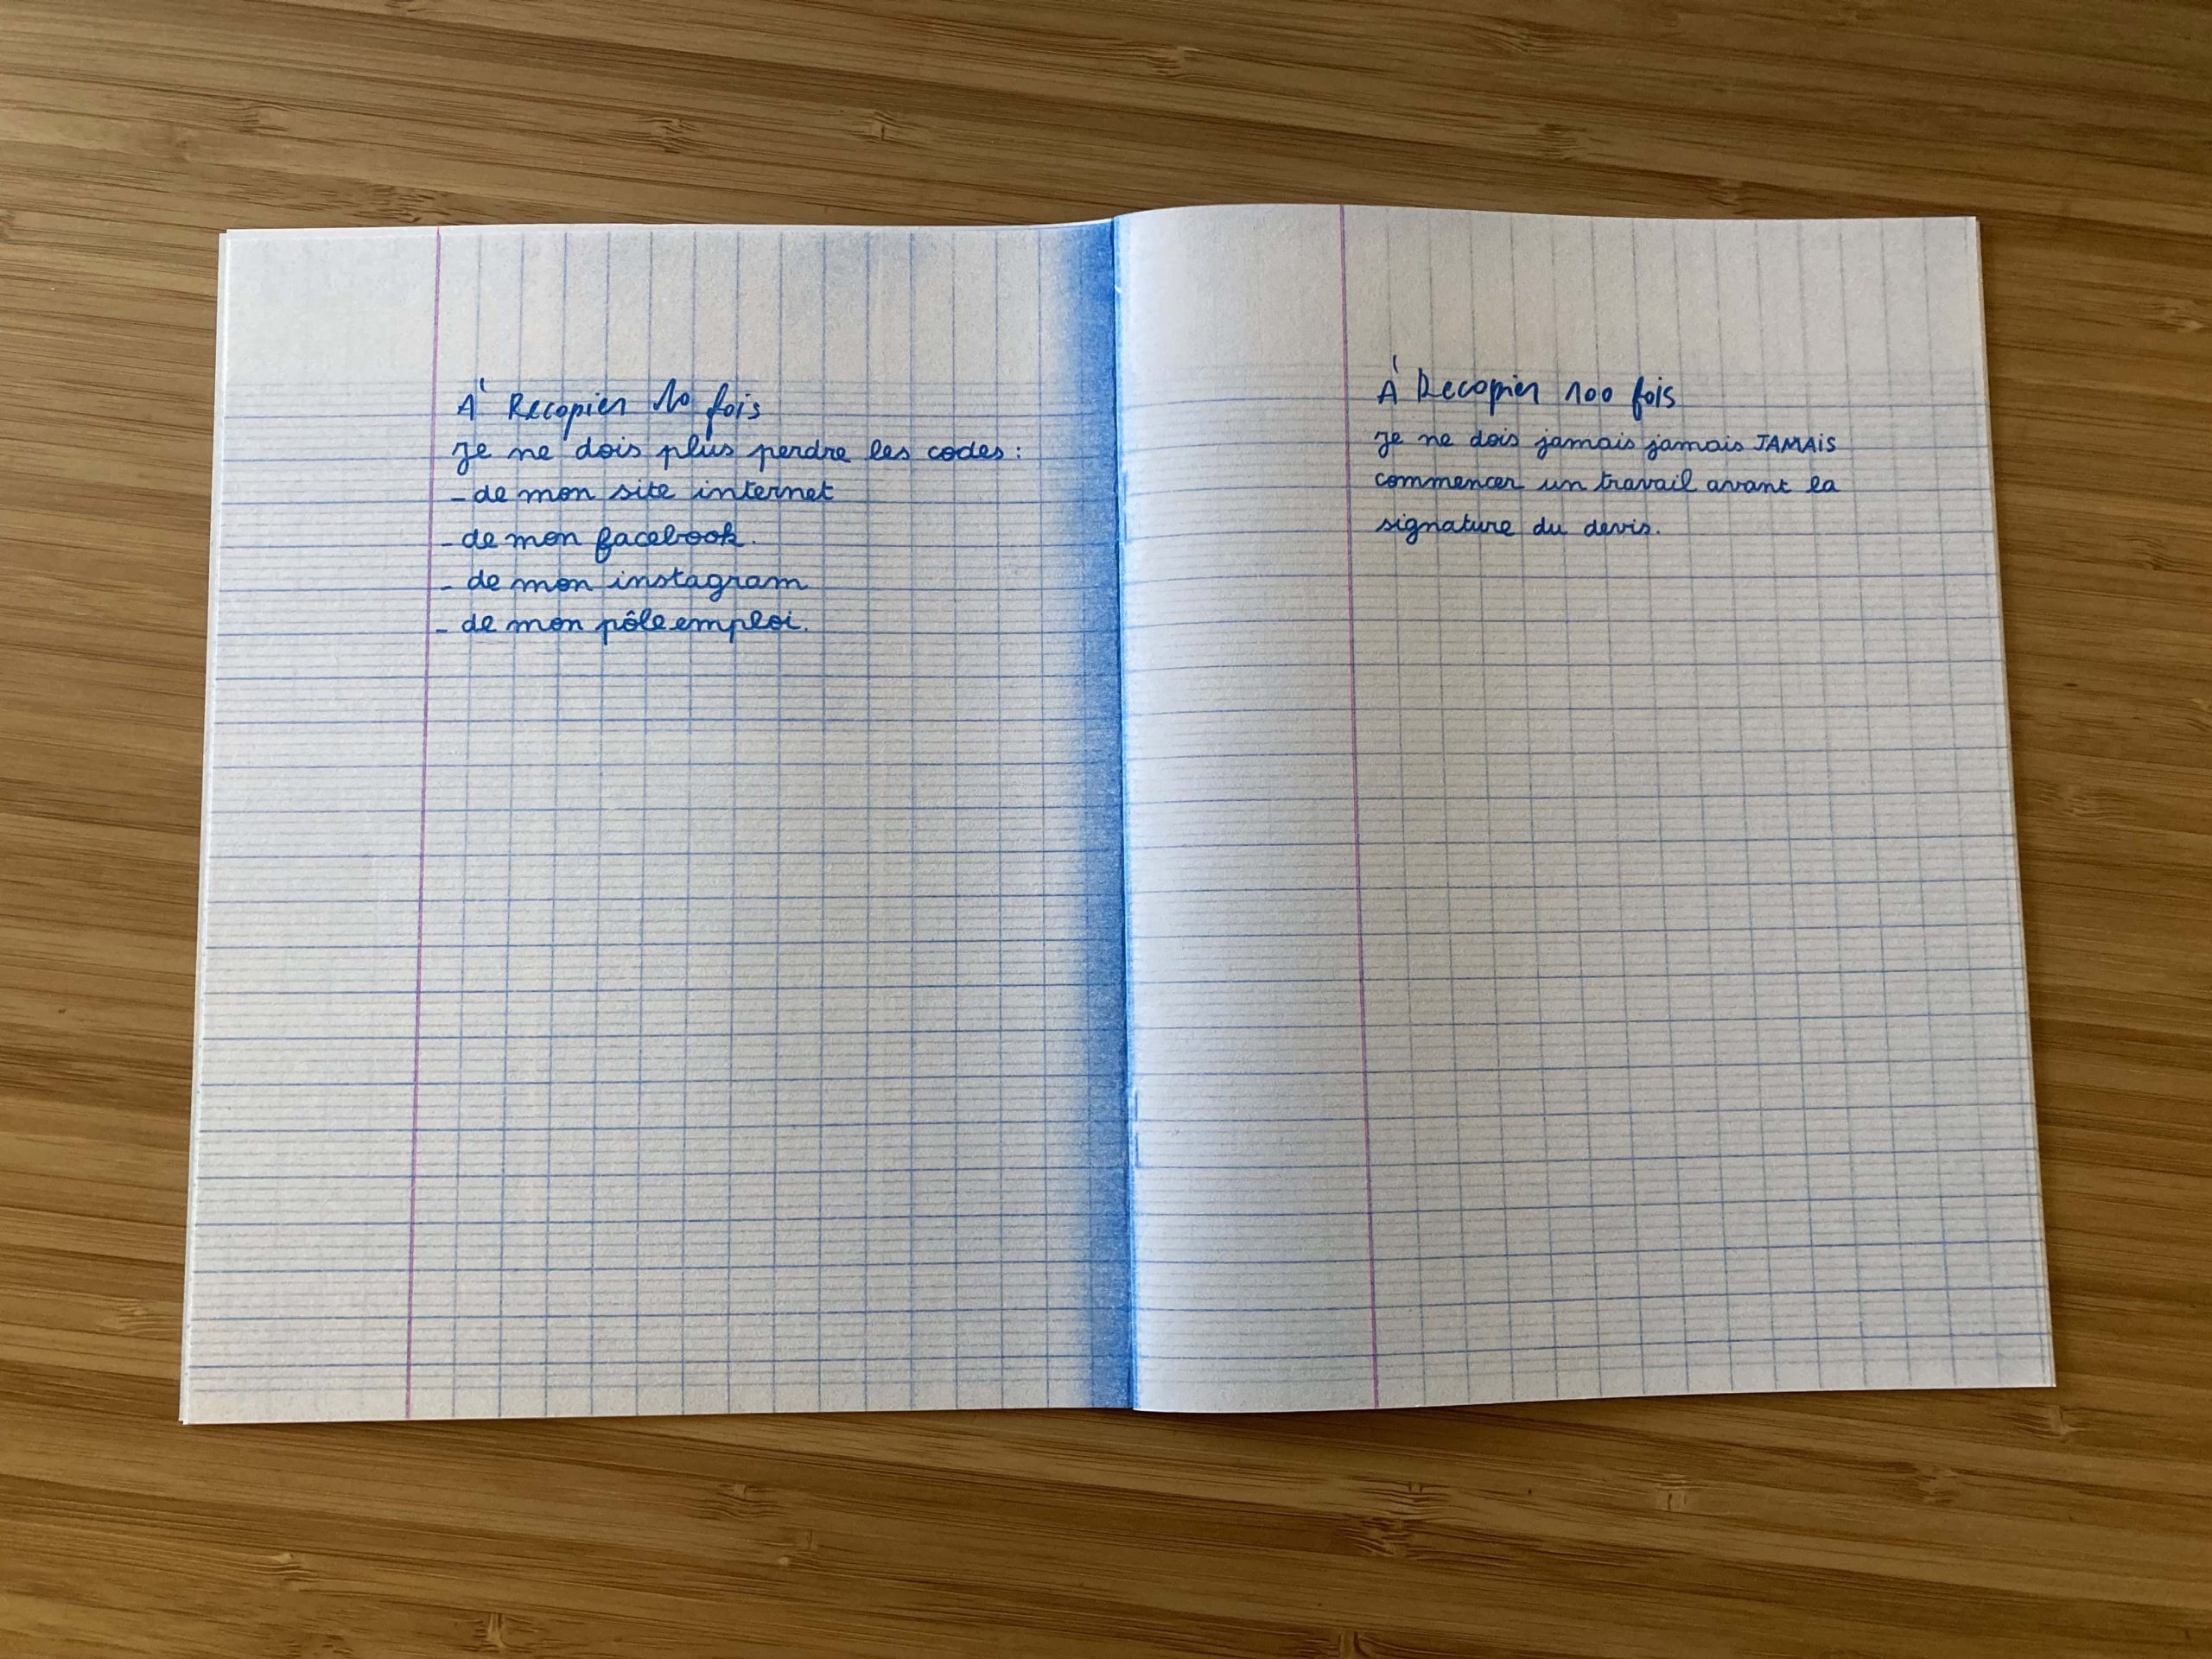 À Recopier 10 fois
Je ne dois plus perdre les codes :
- de mon site internet
- de mon facebook.
- de mon instagram
- de mon pôle emploi.
À Recopier 100 fois
Je ne dois jamais jamais JAMAIS
commencer un travail avant la
signature du devis.